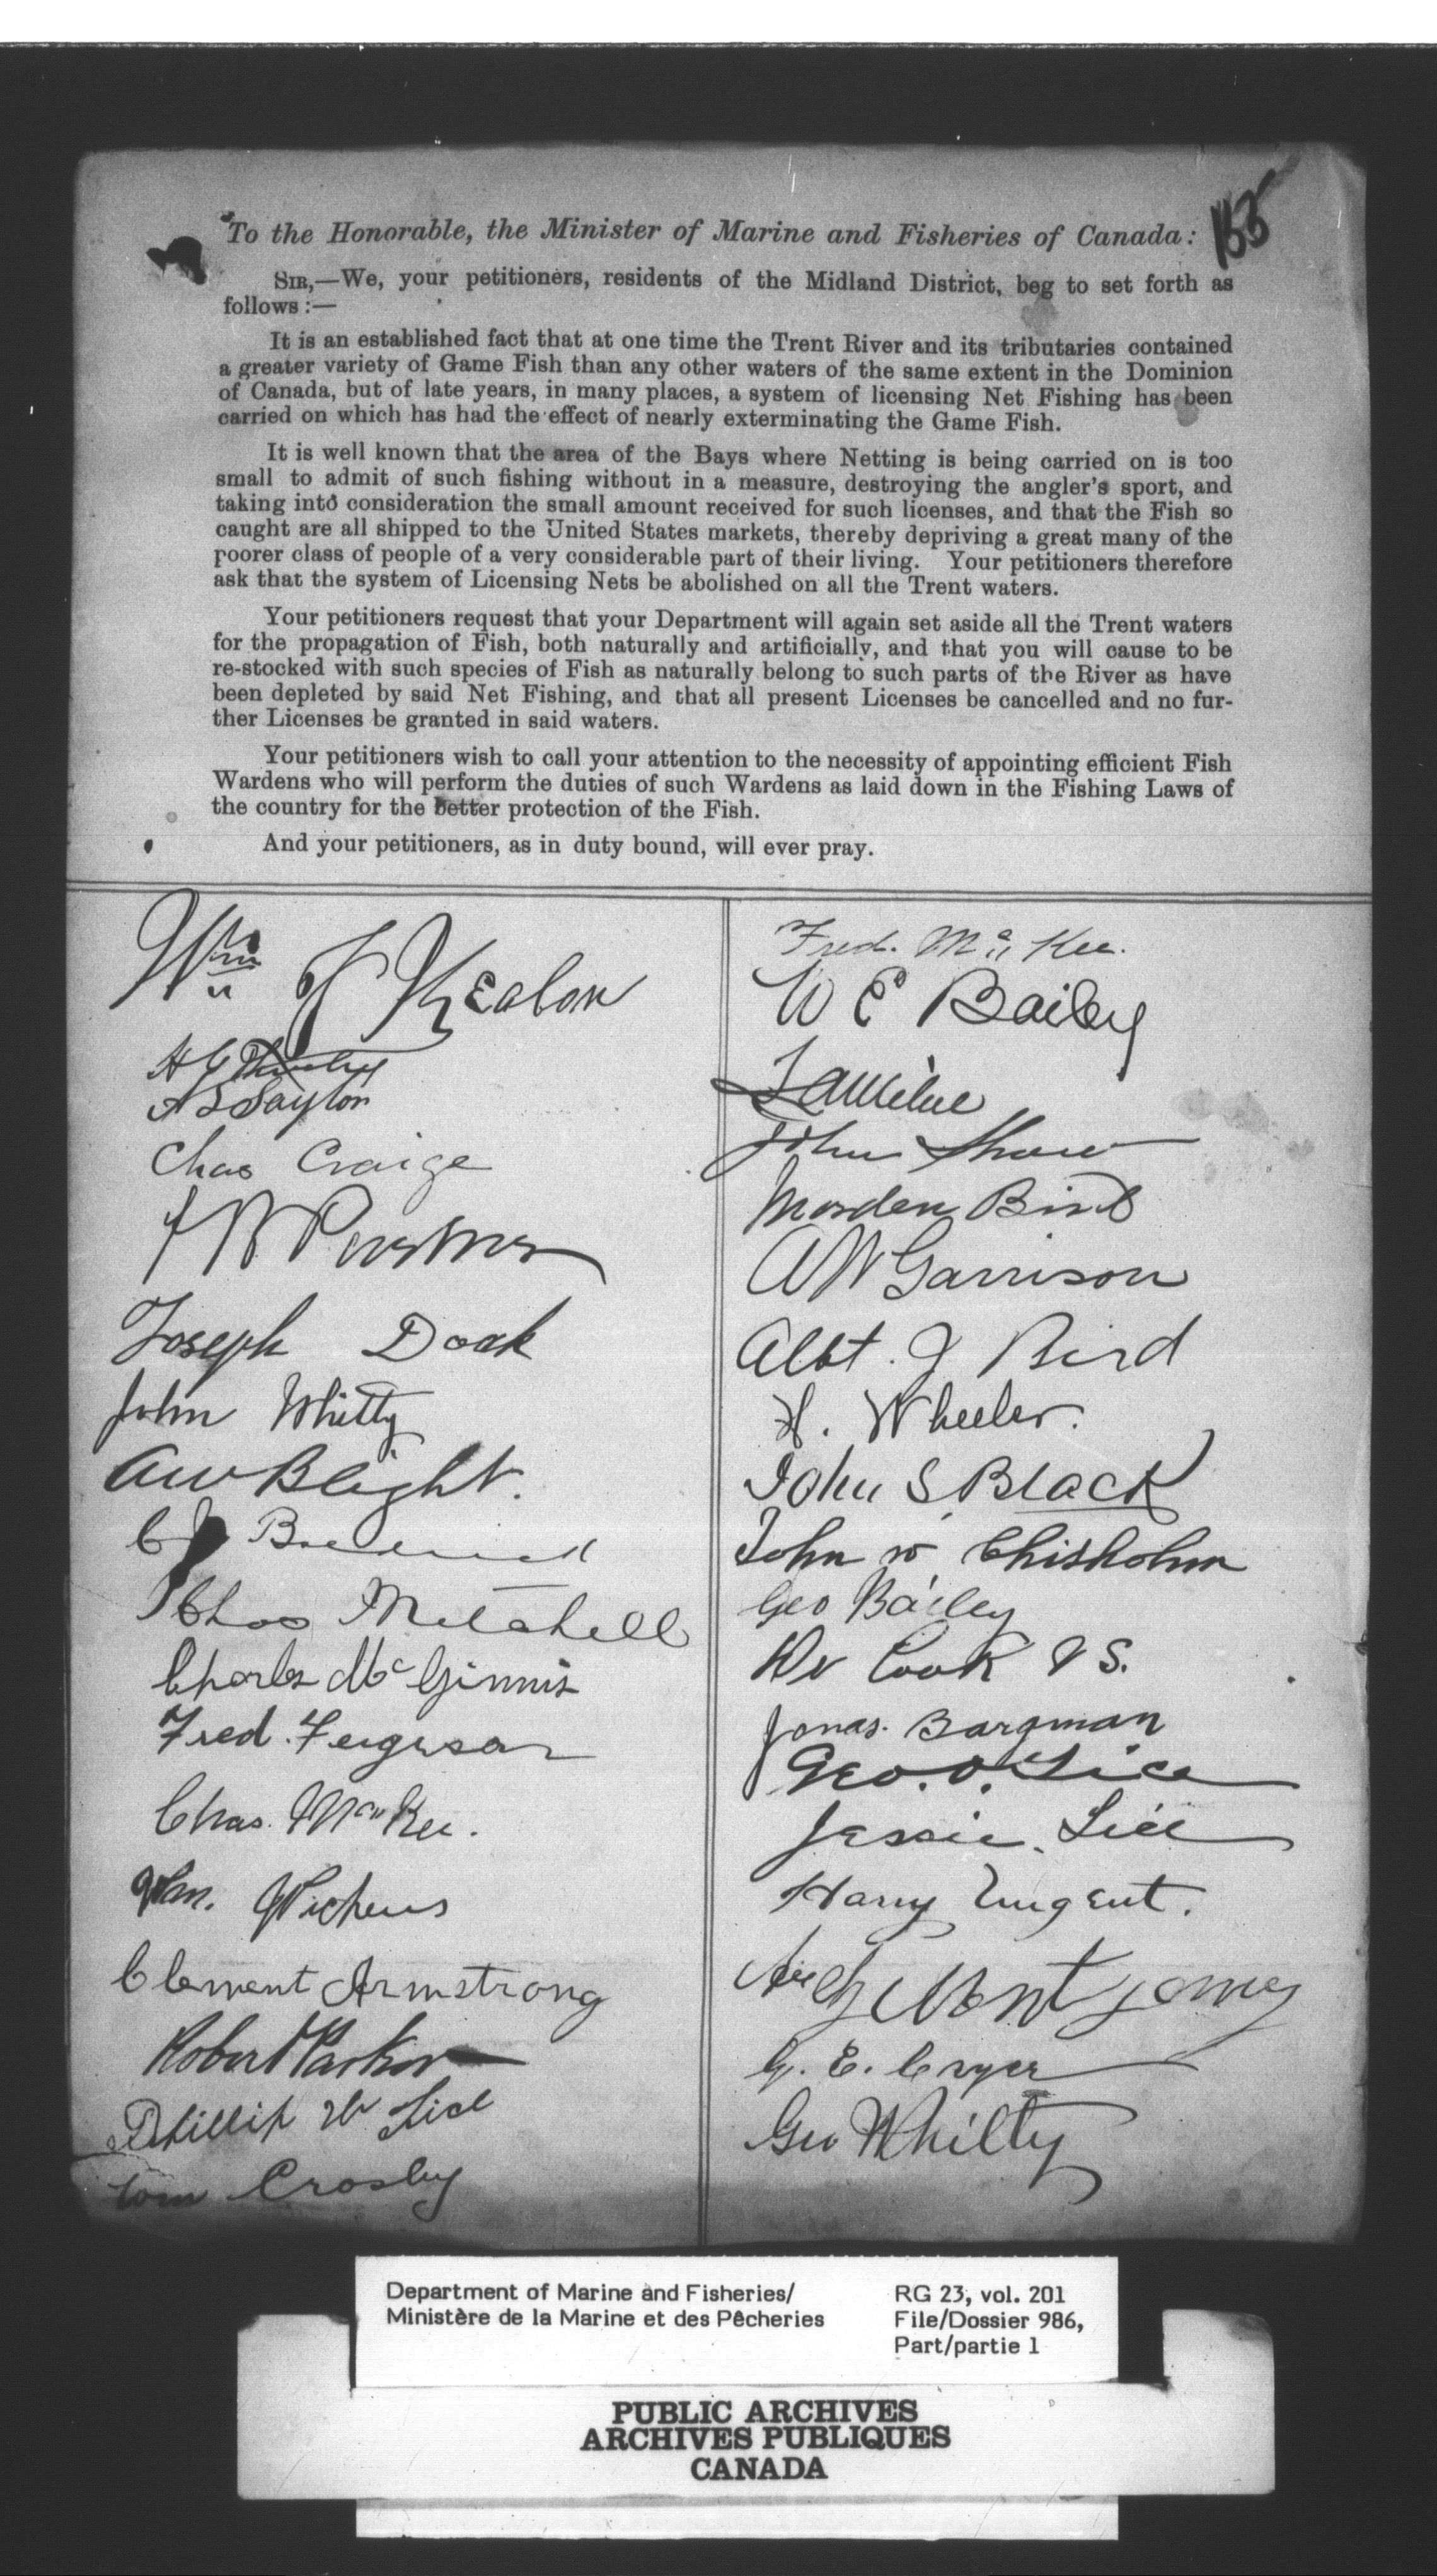 155
To the Honorable, the Minister of Marine and Fisheries of Canada:
SIR,—We, your petitioners, residents of the Midland District, beg to set forth as
follows :—
It is an established fact that at one time the Trent River and its tributaries contained
a greater variety of Game Fish than any other waters of the same extent in the Dominion
of Canada, but of late years, in many places, a system of licensing Net Fishing has been
carried on which has had the effect of nearly exterminating the Game Fish.
It is well known that the area of the Bays where Netting is being carried on is too
small to admit of such fishing without in a measure, destroying the angler's sport, and
taking into consideration the small amount received for such licenses, and that the Fish so
caught are all shipped to the United States markets, thereby depriving a great many of the
poorer class of people of a very considerable part of their living. Your petitioners therefore
ask that the system of Licensing Nets be abolished on all the Trent waters.
Your petitioners request that your Department will again set aside all the Trent waters
for the propagation of Fish, both naturally and artificially, and that you will cause to be
re-stocked with such species of Fish as naturally belong to such parts of the River as have
been depleted by said Net Fishing, and that all present Licenses be cancelled and no fur-
ther Licenses be granted in said waters.
Your petitioners wish to call your attention to the necessity of appointing efficient Fish
Wardens who will perform the duties of such Wardens as laid down in the Fishing Laws of
the country for the better protection of the Fish.
And your petitioners, as in duty bound, will ever pray.
Wm
A S Saylor
Chas Craige
Joseph Doak
John Whitty
A W Bleight.
Chas Mitchell
Charles McGinnis
Fred. Ferguson
Chas. McKee.
Wm. Wickens
Clement Armstrong
Robert Parker
Phillip W Lise
Tom Crosby
Fred. McKee.
W E Bailey
John Shaw
Morden Bird
A W Garrison
Albt. J Bird
H. Wheeler.
John S Black
John W Chisholm
Geo Bailey
Dr Cook V S.
Jonas. Bargman
Geo. O. Lice
Jessie. Lice
Harry Nugent.
Arch Montgomery
G. E. Cryer
Geo Whitty
Department of Marine and Fisheries/
Ministère de la Marine et des Pêcheries
RG 23, vol. 201
File/Dossier 986,
Part/partie 1
PUBLIC ARCHIVES
ARCHIVES PUBLIQUES
CANADA